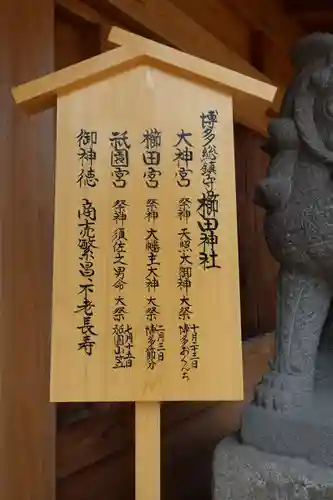 博多総鎮守 櫛田神社
大神宮 祭神 天照大御神 大祭 十月二十三日 博多おくんち
櫛田宮 祭神 大幡主大神 大祭 二月三日 博多節分
祇園宮 祭神 須佐之男命 大祭 七月十五日 祇園山笠
御神徳 商売繁昌、不老長寿